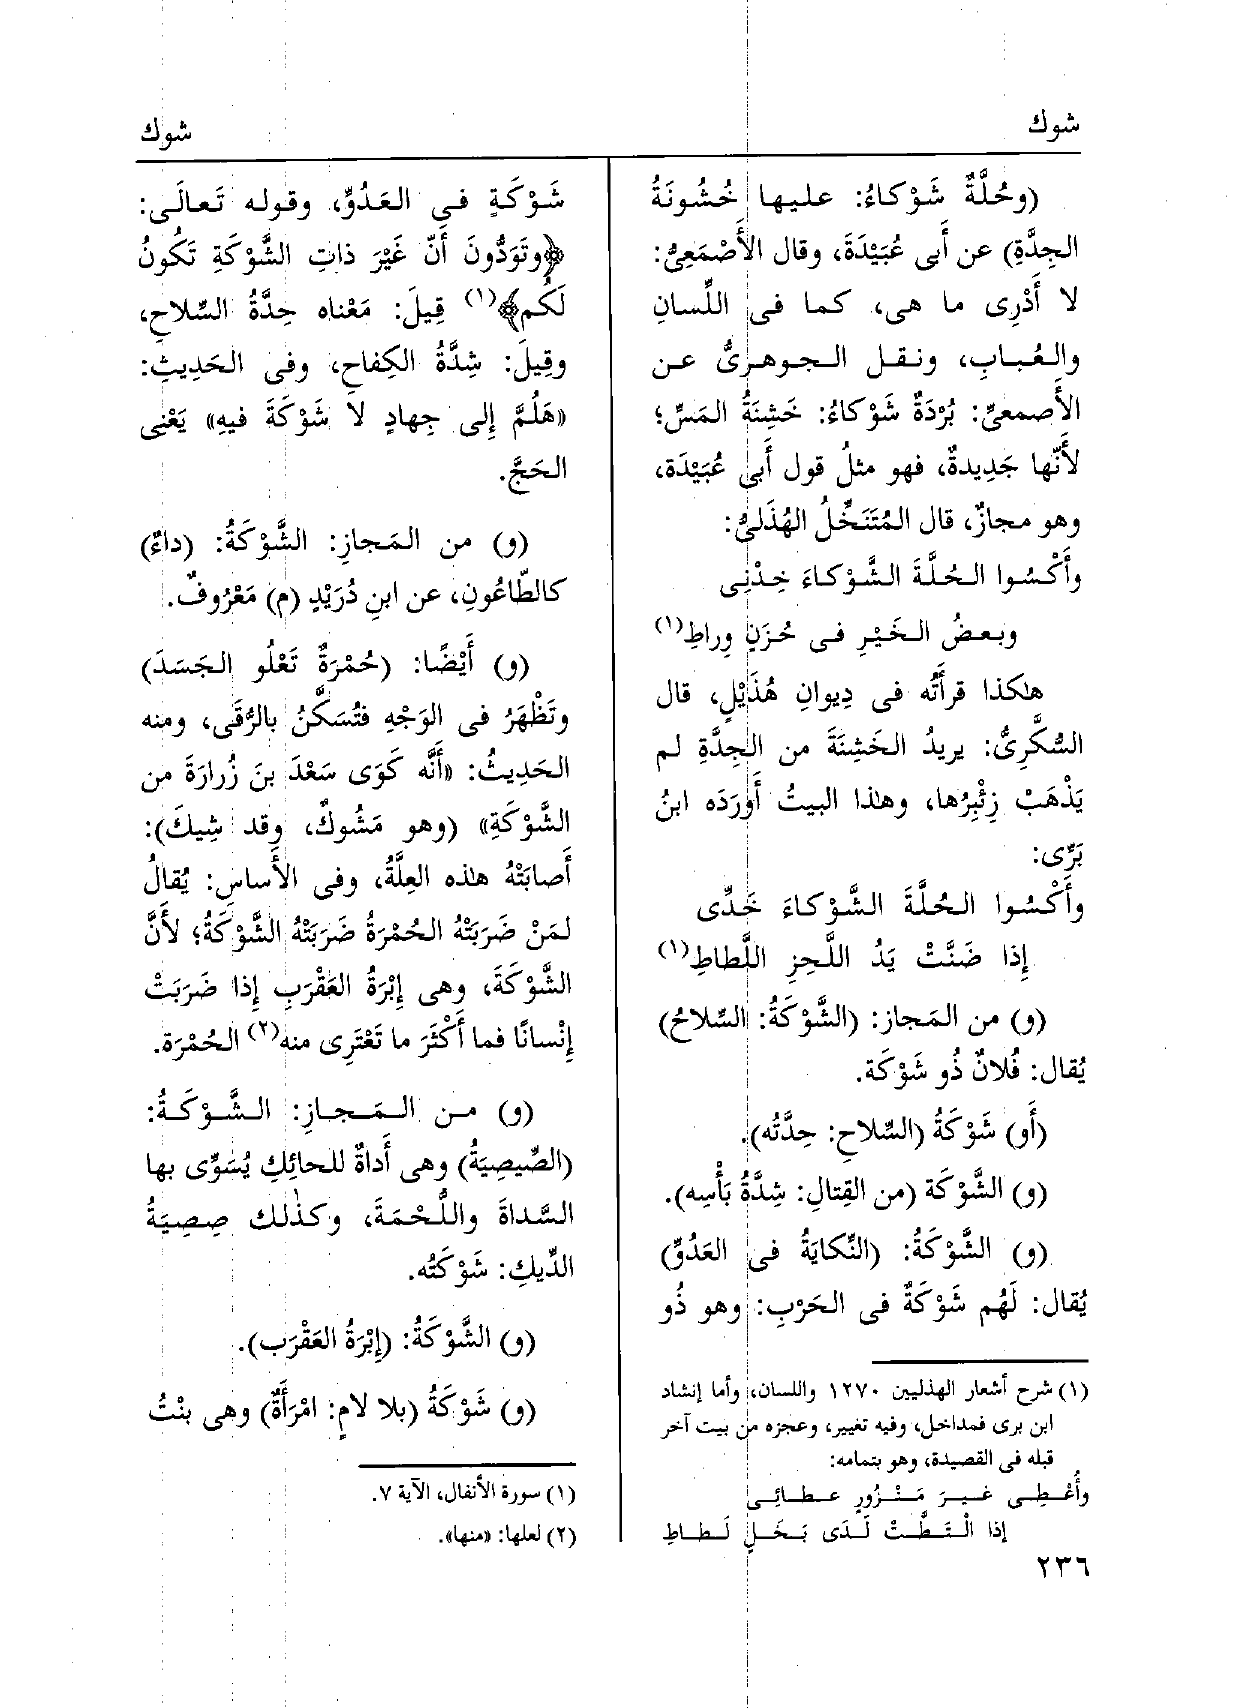 شوك
شوك
(وحُلَّةٌ شَوْكاءُ: عليها خُشُونَةُ
الجِدَّةِ) عن أَبى عُبَيْدَةَ، وقال الأَصْمَعِىُّ:
لا أَدْرِى ما هى، كما فى اللِّسانِ
والعُبابِ، ونقل الجوهرىُّ عن
الأَصمعىِّ: بُرْدَةٌ شَوْكاءُ: خَشِنَةُ المَسِّ؛
لأَنَّها جَدِيدةٌ، فهو مثلُ قول أَبى عُبَيْدَة،
وهو مجازٌ، قال المُتَنَخِّلُ الهُذَلىُّ:
وأَكْسُوا الحُلَّةَ الشَّوْكاءَ خِدْنِى
وبعضُ الخَيْرِ فى حُزَنٍ وِراطِ(١)
هٰكذا قرأتُه فى دِيوانِ هُذَيْلٍ، قال
السُّكَّرِىُّ: يريدُ الخَشِنَةَ من الجِدَّةِ لم
يَذْهَبْ زِئْبِرُها، وهٰذا البيتُ أَورَدَه ابنُ
بَرِّى:
وأَكْسُوا الحُلَّةَ الشَّوْكاءَ خَدِّى
إِذا ضَنَّتْ يَدُ اللَّحِزِ اللَّطاطِ(١)
(و) من المَجاز: (الشَّوْكَةُ: السِّلاحُ)
يُقال: فُلانٌ ذُو شَوْكَة.
(أَو) شَوْكَةُ (السِّلاحِ: حِدَّتُه).
(و) الشَّوْكَة (من القِتالِ: شِدَّةُ بَأْسِه).
(و) الشَّوْكَةُ: (النِّكايَةُ فى العَدُوِّ)
يُقال: لَهُم شَوْكَةٌ فى الحَرْبِ: وهو ذُو
(١) شرح أشعار الهذليين ١٢٧٠ واللسان، وأما إنشاد
ابن برى فمداخل، وفيه تغيير، وعجزه من بيت آخر
قبله فى القصيدة، وهو بتمامه:
وأُعْطِى غيرَ مَنْزُورٍ عطائِى
إذا الْتَطَّتْ لَدَى بَخَلٍ لَطاطِ
٢٣٦
شَوْكَةٍ فى العَدُوِّ، وقوله تَعالَى:
﴿وتَوَدُّونَ أَنّ غَيْرَ ذاتِ الشَّوْكَةِ تَكُونُ
لَكُم﴾(١) قِيلَ: مَعْناه حِدَّةُ السِّلاحِ،
وقِيلَ: شِدَّةُ الكِفاحِ، وفى الحَدِيثِ:
«هَلُمَّ إِلى جِهادٍ لاَ شَوْكَةَ فيهِ» يَعْنِى
الحَجَّ.
(و) من المَجازِ: الشَّوْكَةُ: (داءٌ)
كالطّاعُونِ، عن ابنِ دُرَيْدٍ (م) مَعْرُوفٌ.
(و) أَيْضًا: (حُمْرَةٌ تَعْلُو الجَسَدَ)
وتَظْهَرُ فى الوَجْهِ فتُسَكَّنُ بالرُّقَى، ومنه
الحَدِيثُ: «أَنَّه كَوَى سَعْدَ بنَ زُرارَةَ من
الشَّوْكَةِ» (وهو مَشُوكٌ، وقد شِيكَ):
أَصابَتْهُ هٰذه العِلَّةُ، وفى الأَساسِ: يُقالُ
لمَنْ ضَرَبَتْهُ الحُمْرَةُ ضَرَبَتْهُ الشَّوْكَةُ؛ لأَنَّ
الشَّوْكَةَ، وهى إِبْرَةُ العَقْرَبِ إِذا ضَرَبَتْ
إِنْسانًا فما أَكْثَرَ ما تَعْتَرِى منه(٢) الحُمْرَة.
(و) من المَجازِ: الشَّوْكَةُ:
(الصِّيصِيَةُ) وهى أَداةٌ للحائِكِ يُسَوِّى بها
السَّداةَ واللُّحْمَةَ، وكذٰلك صِيصِيَةُ
الدِّيكِ: شَوْكَتُه.
(و) الشَّوْكَةُ: (إِبْرَةُ العَقْرَب).
(و) شَوْكَةُ (بلا لامٍ: امْرَأَةٌ) وهى بنْتُ
(١) سورة الأنفال، الآية ٧.
(٢) لعلها: «منها».